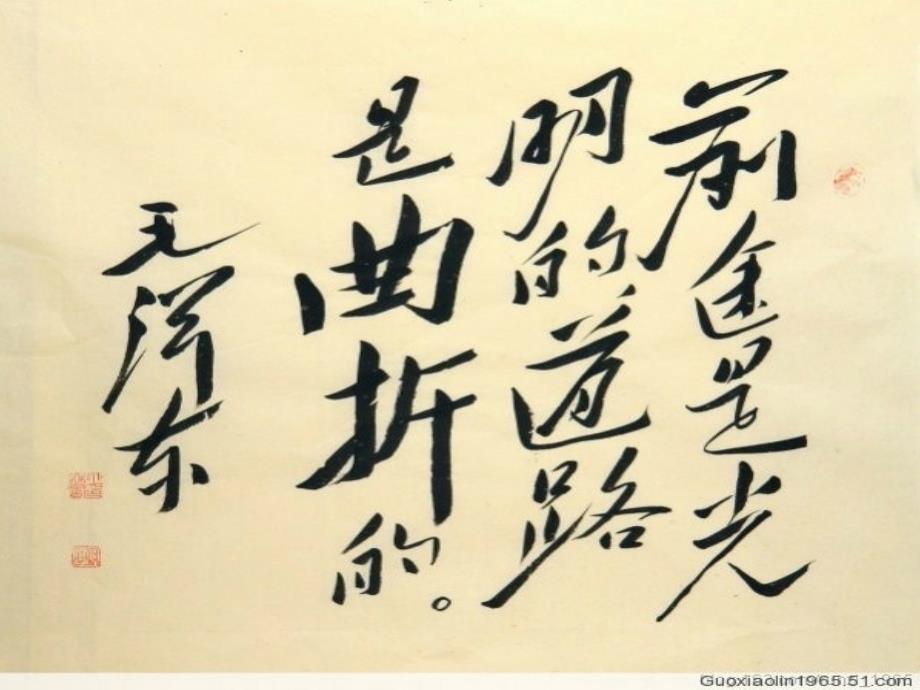 前途是光
明的道路
是曲折的。
毛泽东
Guoxiaolin1965.51.com